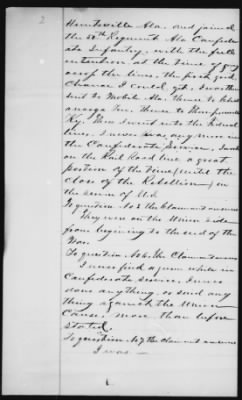 2
Huntsville Ala. and joined
the 50th Regiment Ala Confeder
ate Infantry, with the full
intention at the time of going
across the lines, the first good
chance I could get. I was then
sent to Mobile Ala. Thence to Chat
anooga Ten. Thence to
Ky. Then I went into the Federal
lines. I never was any more in
the Confederate Service. I work
on the Rail Road line a great
portion of the time, until the
close of the Rebellion, in
the service of U.S.
To question No 5 the Claimant answers
They were on the Union side
from begining to the end of the
War.
To question No 6. The Claimant answers
I never fired a gun while in
Confederate service, I never
done anything, or said any
thing against the Union
Cause, more than before
stated.
To question No 7 the claimant answers
I was —